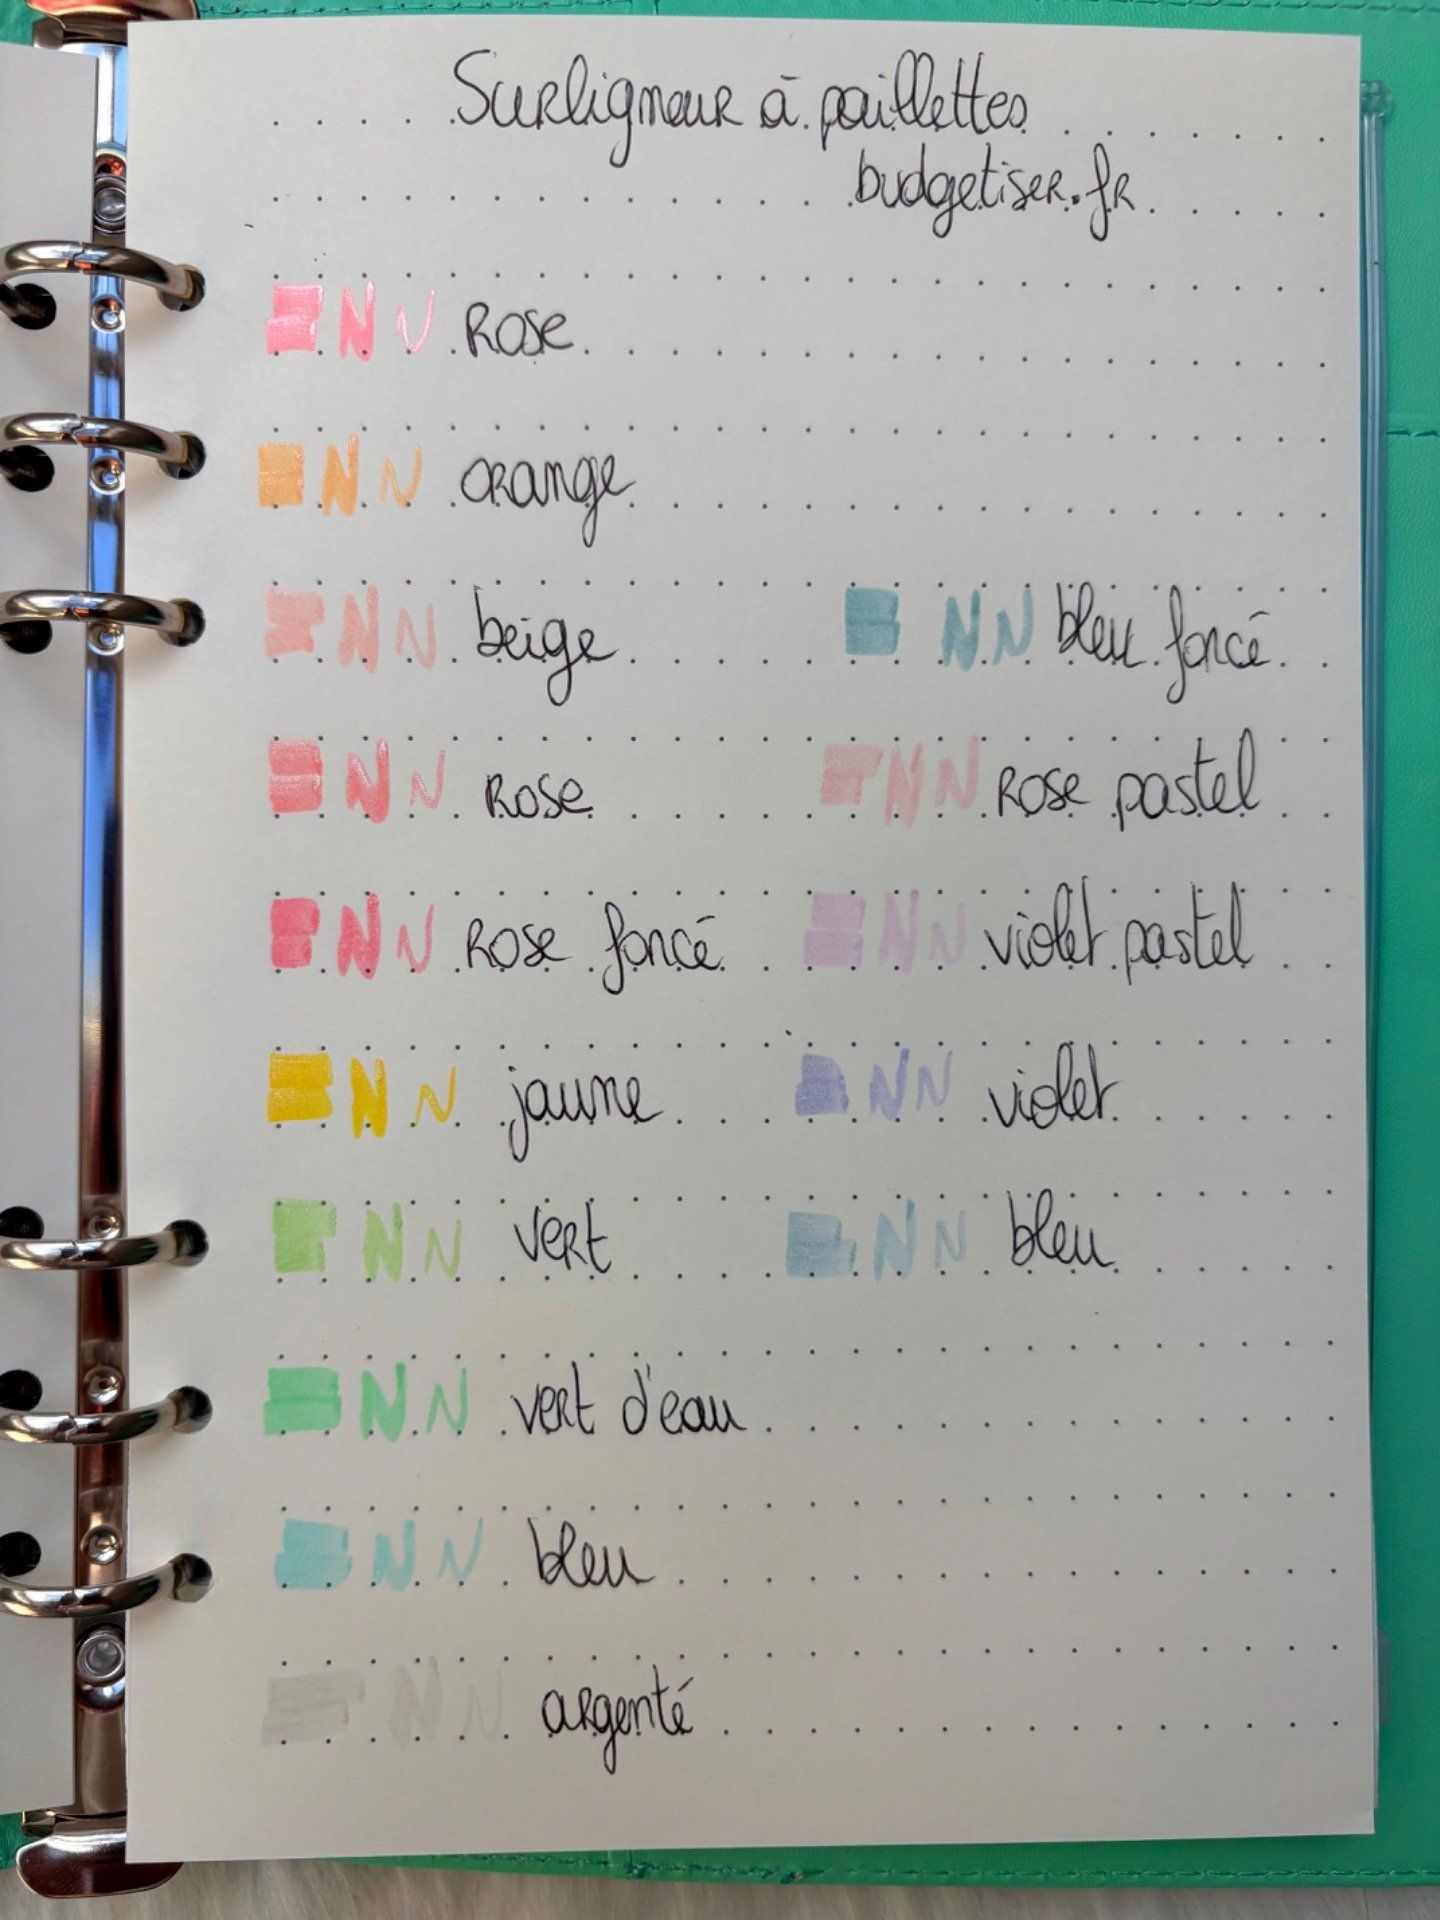 Surligneur à paillettes
budgetiser.fr
N N Rose
N N orange
N N beige
N N bleu foncé
N N Rose
N N Rose pastel
N N Rose foncé
N N violet pastel
N N jaune
N N violet
N N vert
N N bleu
N N vert d'eau
N N bleu
N N argenté